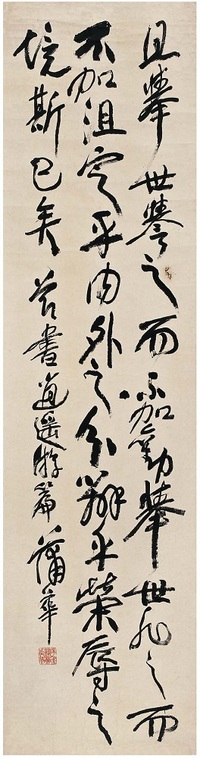 且舉世譽之而不加勸舉世非之而
不加沮定乎内外之分辯乎榮辱之
境斯已矣 節書逍遙游篇 蒲華